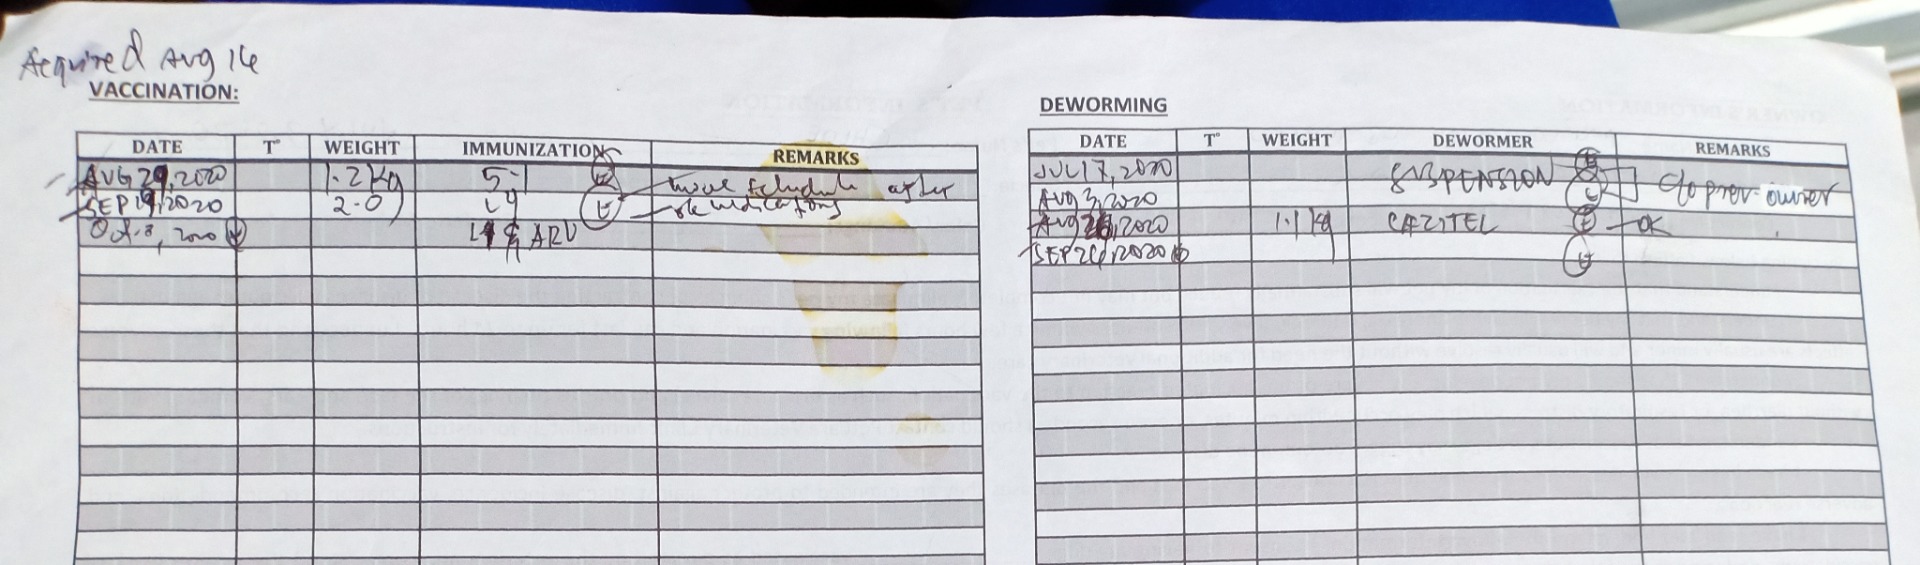 Acquired Aug 16
VACCINATION:
DATE T° WEIGHT IMMUNIZATION REMARKS
AUG 29, 2020 1.2 kg 5-1 move schedule after
SEP 19, 2020 2.0 medications
Oct. 8, 2020 ARV
DEWORMING
DATE T° WEIGHT DEWORMER REMARKS
JUL 17, 2020 SUSPENSION c/o prev. owner
AUG 3, 2020
Aug 2020 1.1 kg CAZITEL - OK
SEP 26, 2020